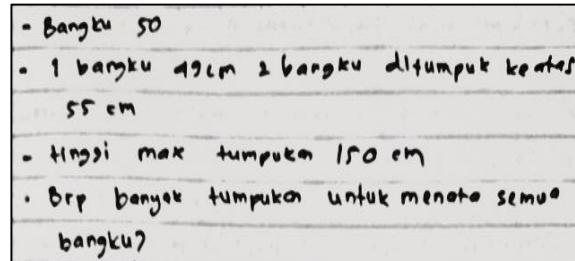 - Bangku 50
- 1 bangku 49cm 2 bangku ditumpuk keatas
55 cm
- tinggi max tumpukan 150 cm
- Brp banyak tumpukan untuk menata semua
bangku?